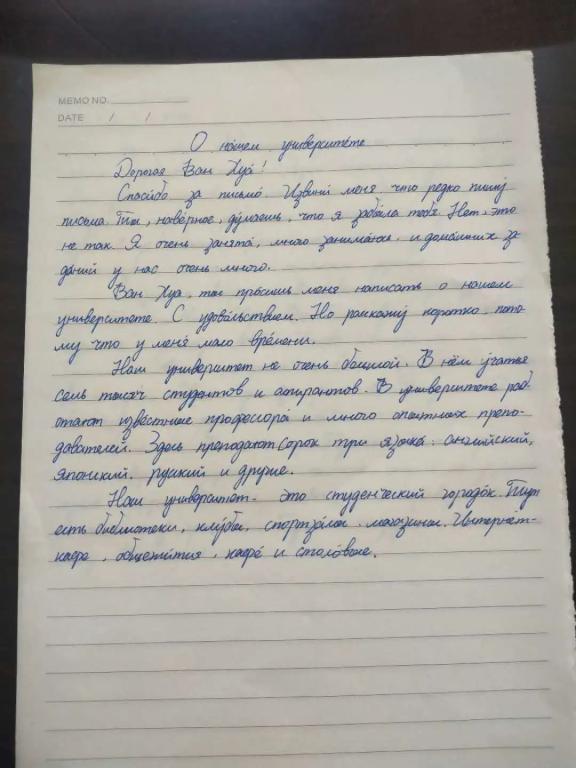 MEMO NO.
DATE / /
О на́шем университе́те
Дорогая Ван Хуа́!
Спаси́бо за письмо́. Извини́ меня, что редко пишу́
письма. Ты, наве́рное, ду́маешь, что я забы́ла тебя. Нет, это
не так. Я очень занята́, много занима́юсь, и дома́шних за-
да́ний у нас очень мно́го.
Ван Хуа, ты про́сишь меня написать о нашем
университете. С удово́льствием. Но расскажу́ коротко, пото-
му́ что у меня́ мало вре́мени.
Наш университет не очень большой. В нём у́чатся
семь тысяч студентов и аспирантов. В университете раб-
отают изве́стные профессора́ и много опытных препо-
давателей. Здесь преподают сорок три языка́: английский,
японский, русский и другие.
Наш университет- это студенческий городо́к. Тут
есть библиотеки, клу́бы, спортза́лы, магазины. Интерне́т-
кафе, общежи́тия, кафе́ и столо́вые.